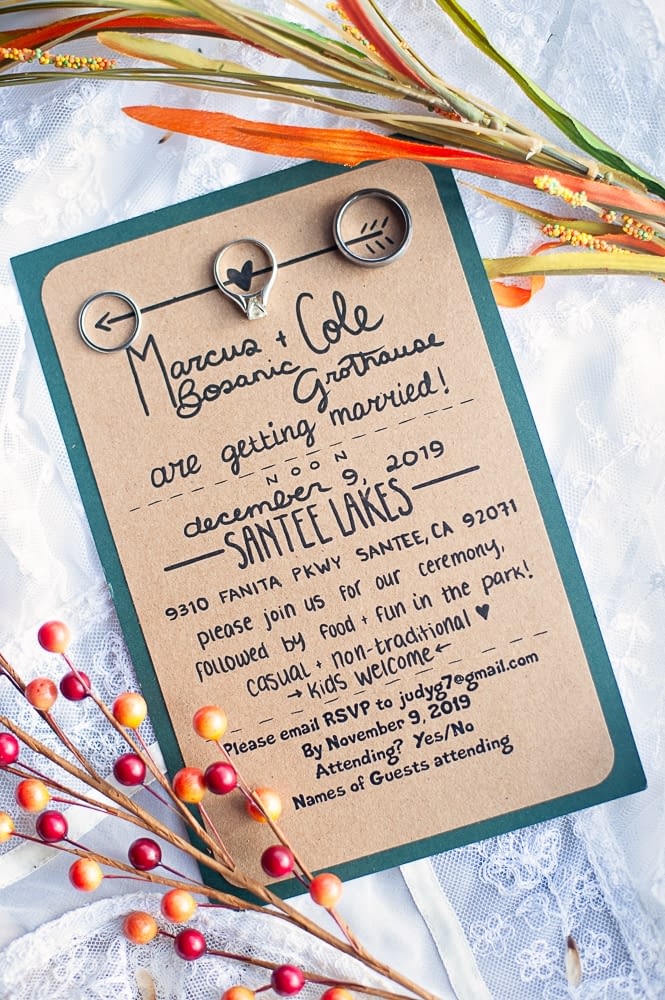 Marcus + Cole
Bosanic Grothause
are getting married!
NOON
december 9, 2019
SANTEE LAKES
9310 FANITA PKWY SANTEE, CA 92071
please join us for our ceremony,
followed by food + fun in the park!
casual + non-traditional ♥
→ kids welcome ←
Please email RSVP to judyg7@gmail.com
By November 9, 2019
Attending? Yes/No
Names of Guests attending